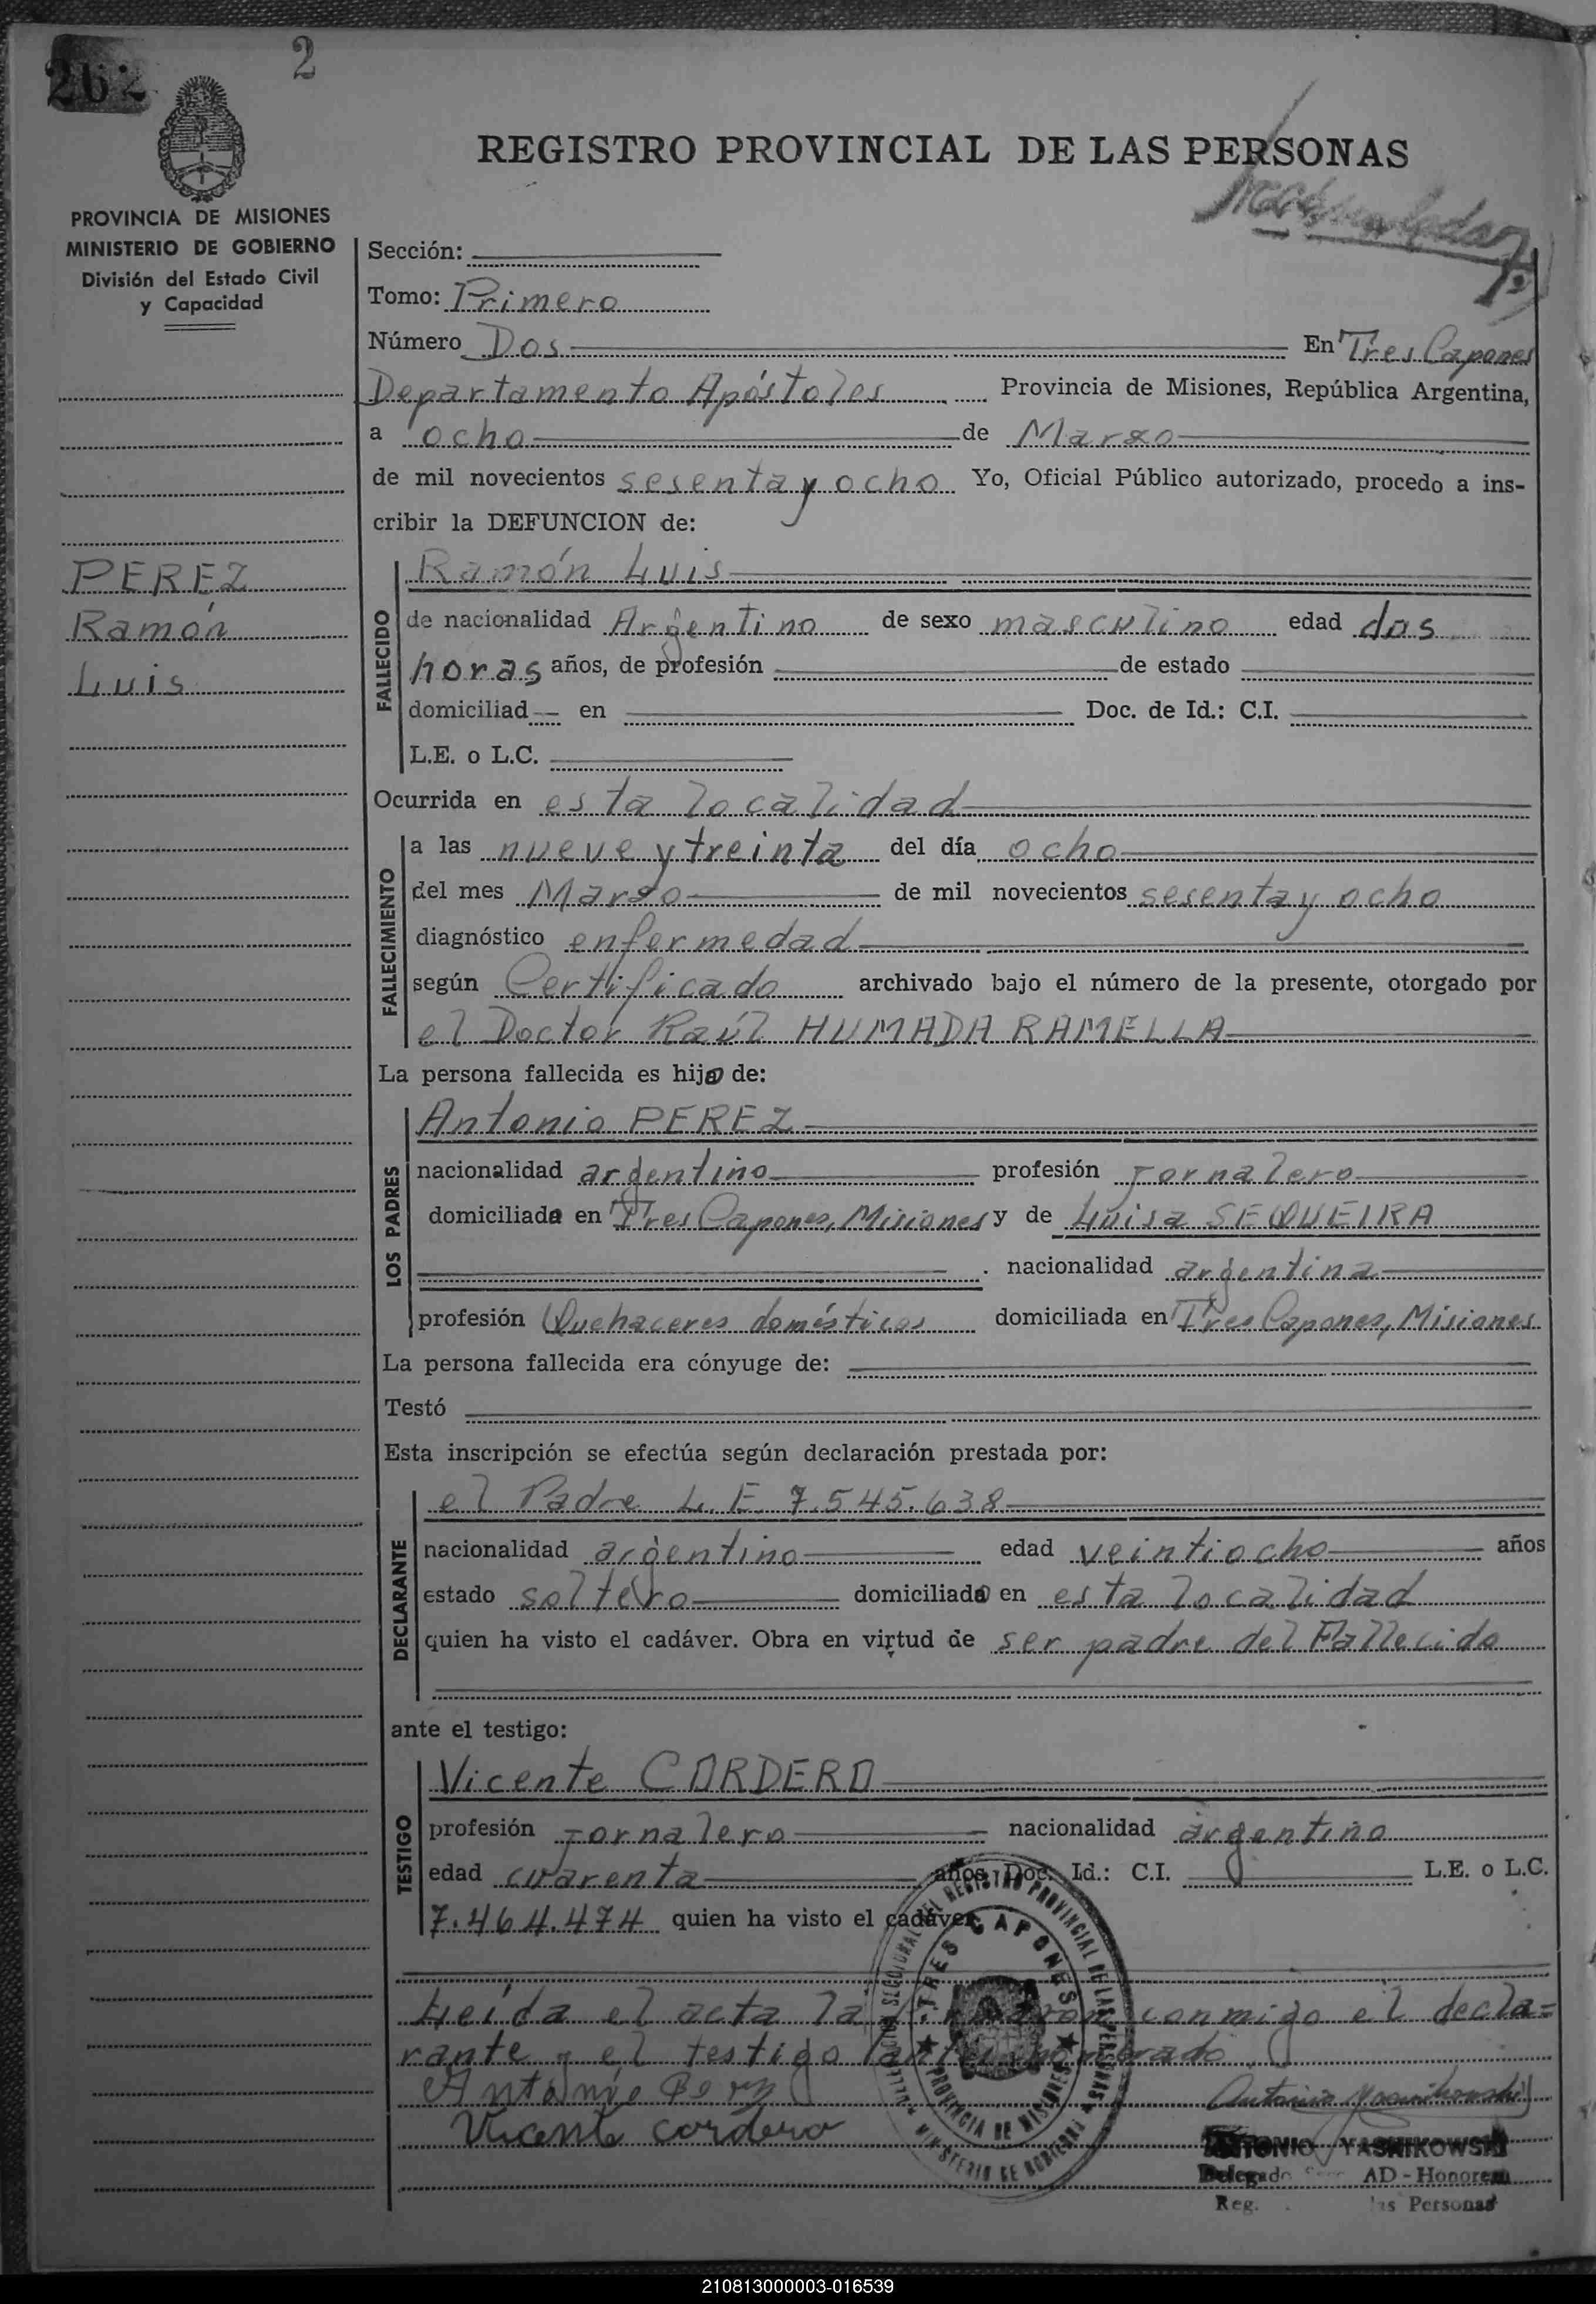 262
2
REGISTRO PROVINCIAL DE LAS PERSONAS
PROVINCIA DE MISIONES
MINISTERIO DE GOBIERNO
División del Estado Civil
y Capacidad
Sección:
Tomo: Primero
Número Dos En Tres Capones
Departamento Apóstoles Provincia de Misiones, República Argentina,
a ocho de Marzo
de mil novecientos sesenta y ocho Yo, Oficial Público autorizado, procedo a ins-
cribir la DEFUNCION de:
PEREZ
Ramón
Luis
FALLECIDO
Ramón Luis
de nacionalidad Argentino de sexo masculino edad dos
horas años, de profesión de estado
domiciliad en Doc. de Id.: C.I.
L.E. o L.C.
Ocurrida en esta localidad
FALLECIMIENTO
a las nueve y treinta del día ocho
del mes Marzo de mil novecientos sesenta y ocho
diagnóstico enfermedad
según Certificado archivado bajo el número de la presente, otorgado por
el Doctor Raúl HUMADA RAMELLA
La persona fallecida es hijo de:
LOS PADRES
Antonio PEREZ
nacionalidad argentino profesión Jornalero
domiciliado en Tres Capones, Misiones y de Luisa SEQUEIRA
nacionalidad argentina
profesión Quehaceres domésticos domiciliada en Tres Capones, Misiones
La persona fallecida era cónyuge de:
Testó
Esta inscripción se efectúa según declaración prestada por:
DECLARANTE
el Padre L. E. 7.545.638
nacionalidad argentino edad veintiocho años
estado soltero domiciliado en esta localidad
quien ha visto el cadáver. Obra en virtud de ser padre del Fallecido
ante el testigo:
TESTIGO
Vicente CORDERO
profesión Jornalero nacionalidad argentino
edad cuarenta años, Doc. Id.: C.I. L.E. o L.C.
7.464.474 quien ha visto el cadáver
Leída el acta la conmigo el decla=
rante y el testigo
Antonio Perez
Vicente cordero
Antonio Yasnikowski
ANTONIO YASNIKOWSKI
Delegado AD-Honorem
Reg. las Personas
TRES CAPONES
PROVINCIA DE MISIONES
REGISTRO PROVINCIAL DE LAS PERSONAS
MINISTERIO DE GOBIERNO
210813000003-016539